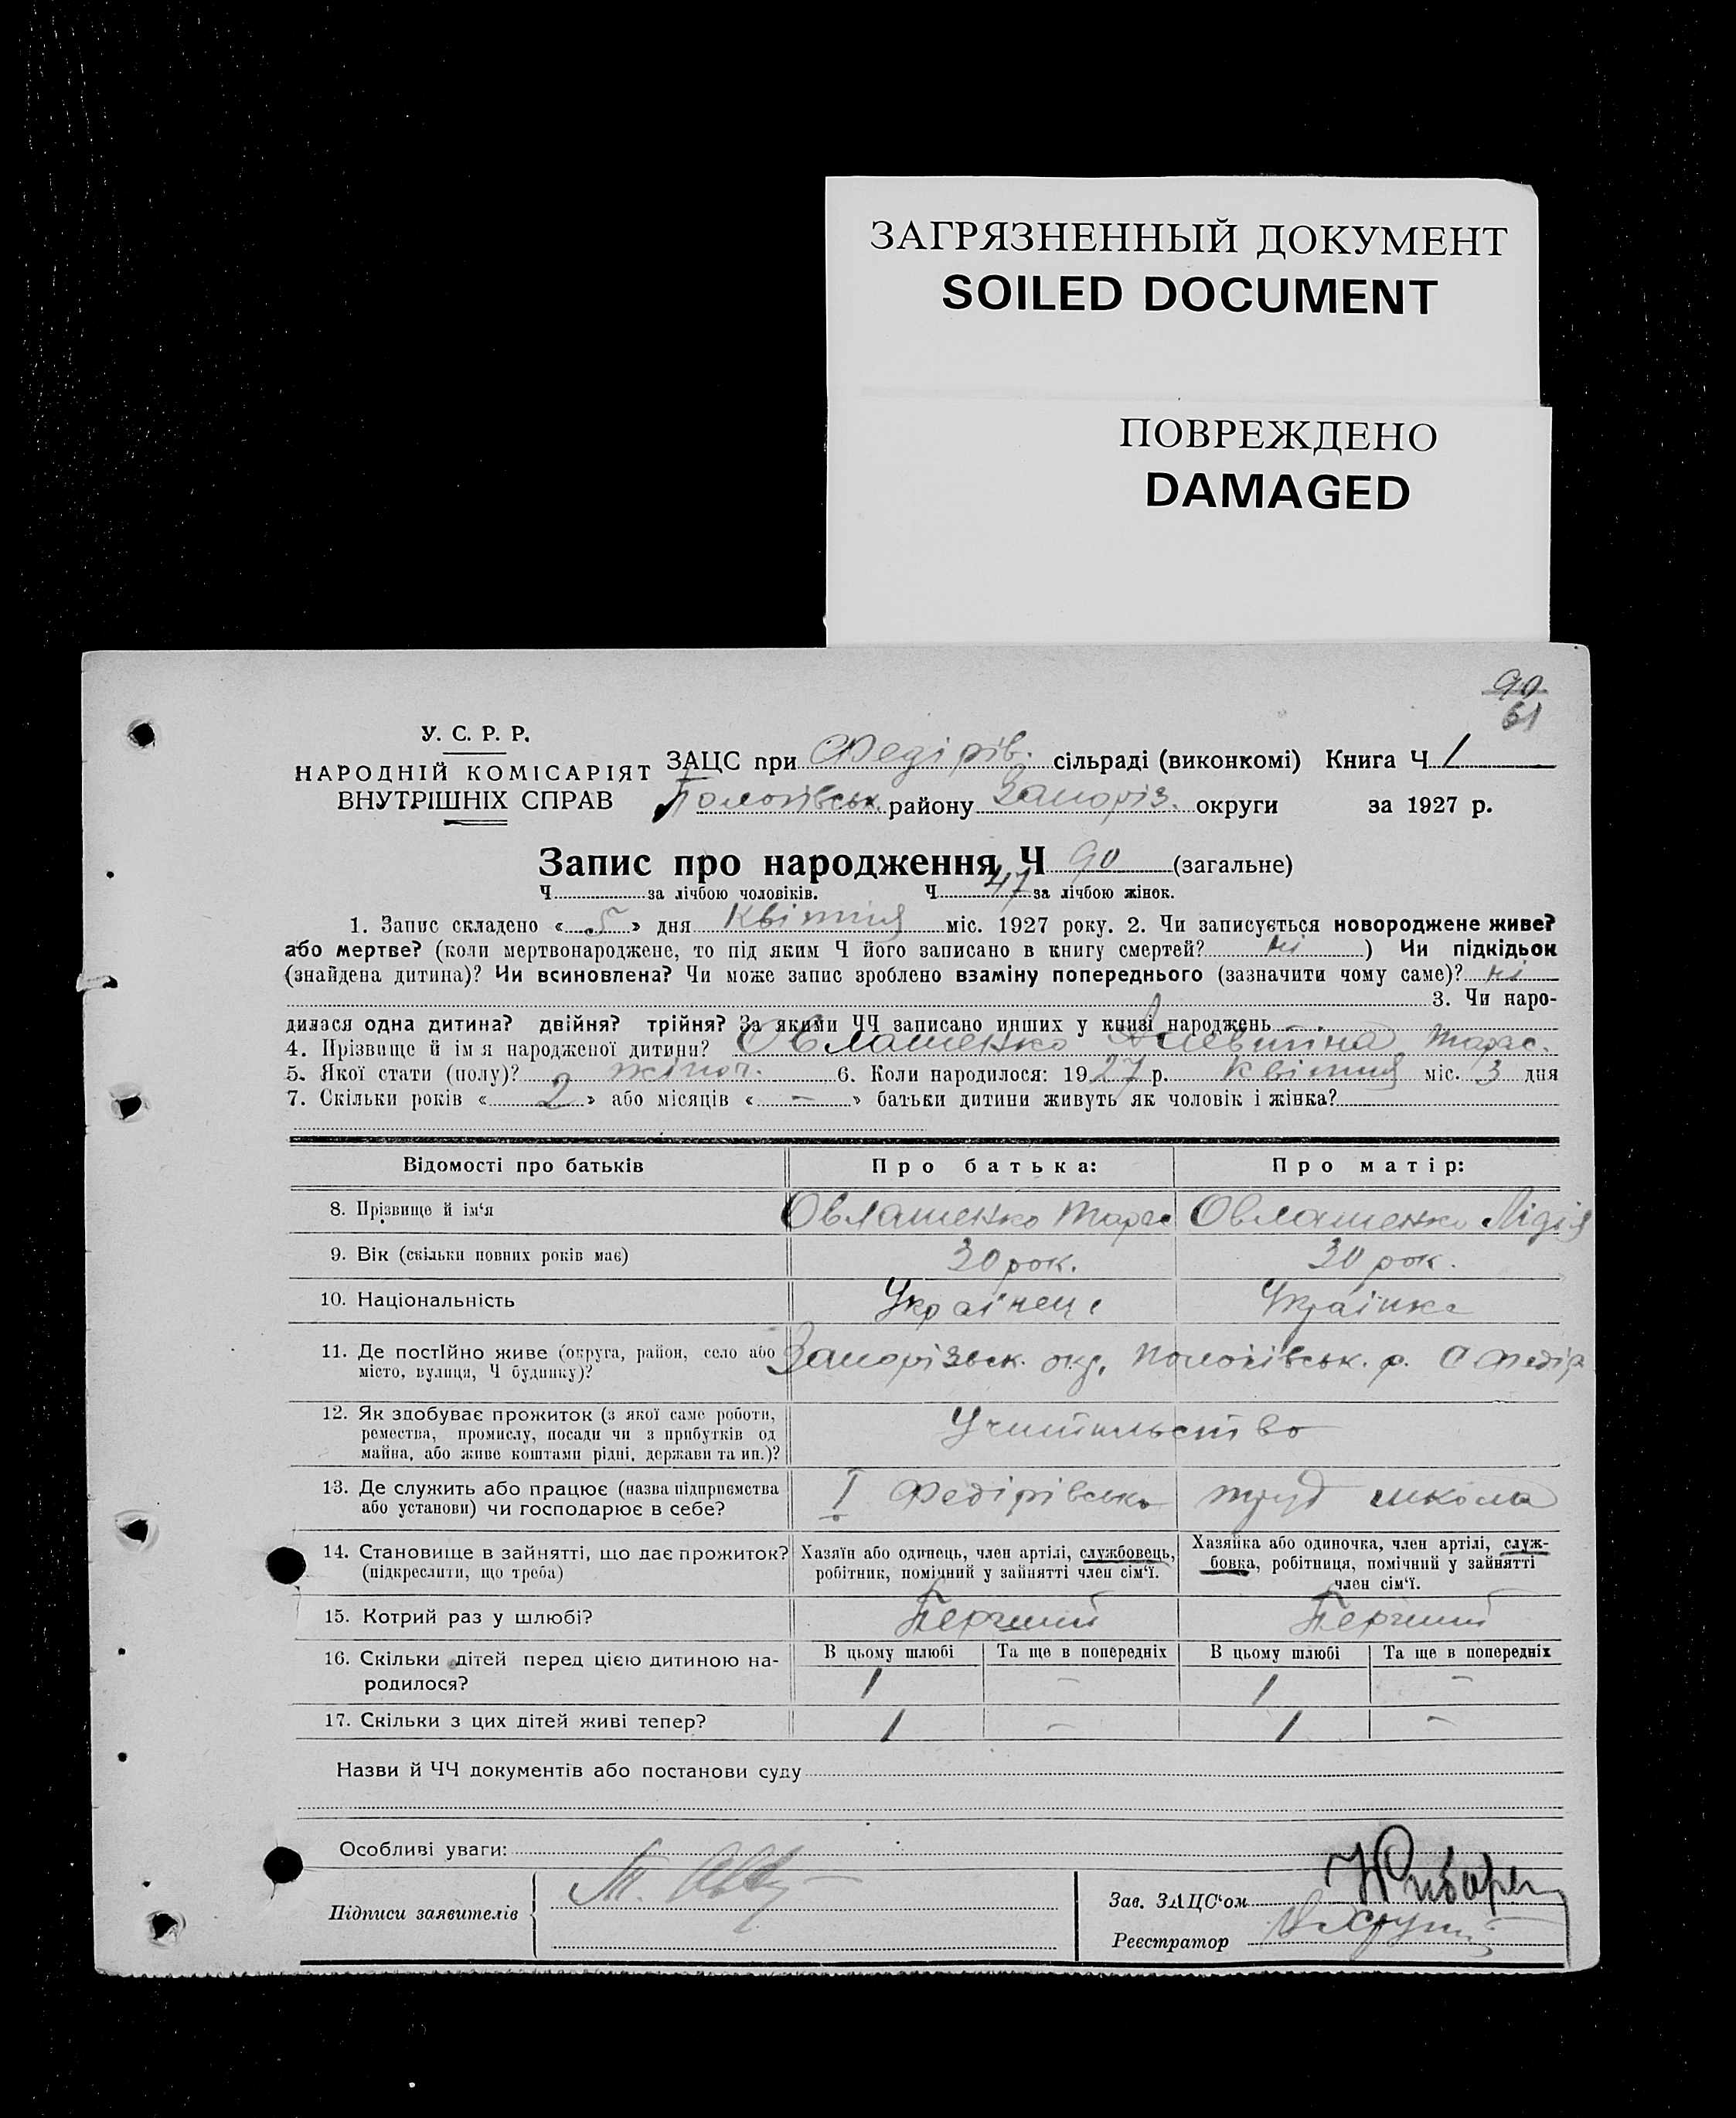 ЗАГРЯЗНЕННЫЙ ДОКУМЕНТ
SOILED DOCUMENT
ПОВРЕЖДЕНО
DAMAGED
90
61
У. С. Р. Р.
НАРОДНІЙ КОМІСАРІЯТ
ВНУТРІШНІХ СПРАВ
ЗАЦС при Федірів. сільраді (виконкомі) Книга Ч 1
Пологівськ. району Запоріз. округи за 1927 р.
Запис про народження Ч 90 (загальне)
Ч за лічбою чоловіків. Ч 47 за лічбою жінок.
1. Запис складено « 5 » дня Квітня міс. 1927 року. 2. Чи записується новороджене живе?
або мертве? (коли мертвонароджене, то під яким Ч його записано в книгу смертей? ні ) Чи підкідьок
(знайдена дитина)? Чи всиновлена? Чи може запис зроблено взаміну попереднього (зазначити чому саме)? ні
3. Чи наро-
дилася одна дитина? двійня? трійня? За якими ЧЧ записано инших у книзі народжень
4. Прізвище й ім я народженої дитини? Овлашенко Алевтіна Тарас.
5. Якої стати (полу)? жіноч. 6. Коли народилося: 1927 р. Квітня міс. 3 дня
7. Скільки років « 2 » або місяців « – » батьки дитини живуть як чоловік і жінка?
Відомості про батьків Про батька: Про матір:
8. Прізвище й ім‘я Овлашенко Тарас Овлашенко Лідія
9. Вік (скільки повних років має) 30 рок. 30 рок.
10. Національність Українець Українка
11. Де постійно живе (округа, район, село або Запорізьк. окр. Пологівськ. р. С Федір
місто, вулиця, Ч будинку)?
12. Як здобуває прожиток (з якої саме роботи, Учительство
ремества, промислу, посади чи з прибутків од
майна, або живе коштами рідні, держави та ин.)?
13. Де служить або працює (назва підприємства І Федірівська труд школа
або установи) чи господарює в себе?
14. Становище в зайнятті, що дає прожиток? Хазяїн або одинець, член артілі, службовець, Хазяйка або одиночка, член артілі, служ-
(підкреслити, що треба) робітник, помічний у зайнятті член сім‘ї. бовка, робітниця, помічний у зайнятті
член сім‘ї.
15. Котрий раз у шлюбі? Перший Перший
16. Скільки дітей перед цією дитиною на- В цьому шлюбі Та ще в попередніх В цьому шлюбі Та ще в попередніх
родилося? 1 – 1 –
17. Скільки з цих дітей живі тепер? 1 – 1 –
Назви й ЧЧ документів або постанови суду
Особливі уваги:
Підписи заявителів
Зав. ЗАЦС‘ом
Реєстратор